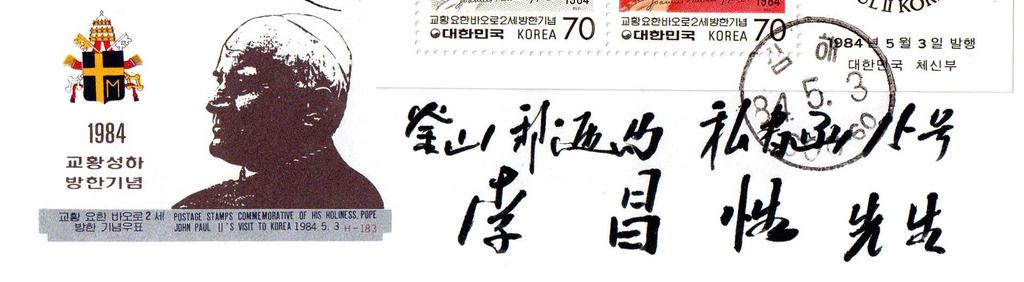 1984
교황성하
방한기념
교황 요한 바오로 2세
방한 기념우표
POSTAGE STAMPS COMMEMORATIVE OF HIS HOLINESS, POPE
JOHN PAUL II'S VISIT TO KOREA 1984. 5. 3 H-183
1984
교황요한바오로2세방한기념
대한민국 KOREA 70
1984
교황요한바오로2세방한기념
대한민국 KOREA 70
UL II KOR
1984년 5월 3일 발행
대한민국 체신부
김해
84. 5. 3
釜山 私書函 15号
李昌性 先生